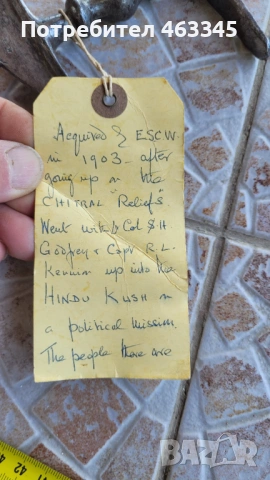 Потребител 463345
Acquired by E.S.C.W
in 1903 - after
going up on the
CHITRAL "Reliefs".
Went with Col S.H
Godfrey & Capt R.L.
Kennion up into the
HINDU KUSH on
a political mission.
The people there are
BAZAR
bg